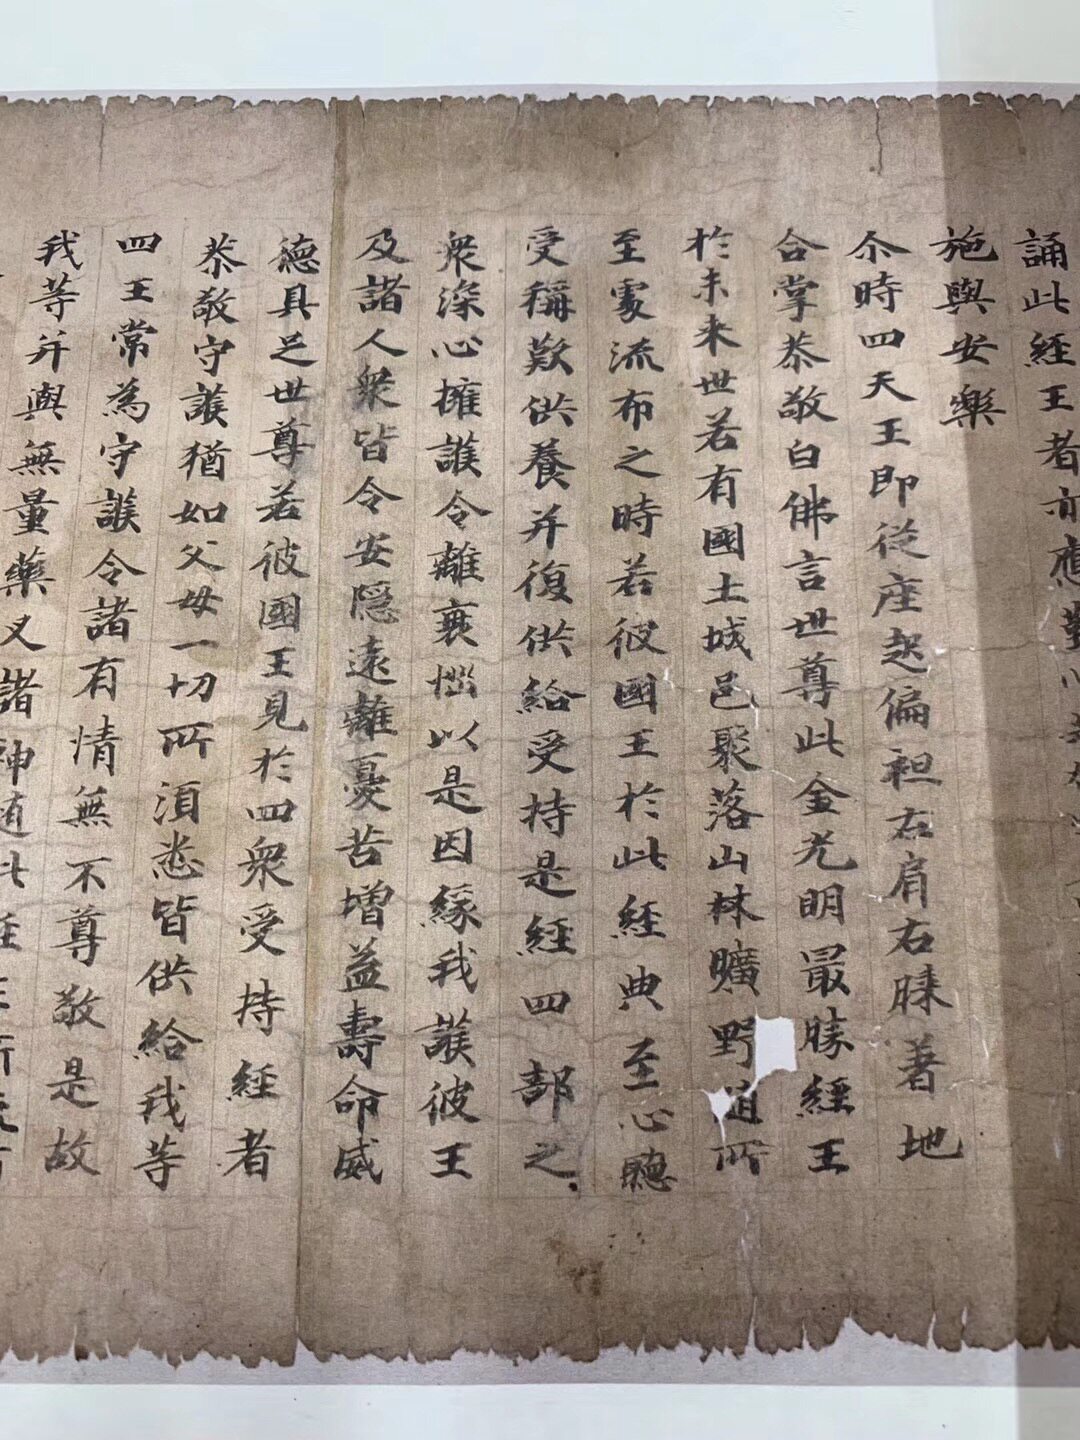 誦此經王者亦應勤心
施與安樂
尒時四天王即從座起偏袒右肩右膝著地
合掌恭敬白佛言世尊此金光明最勝經王
於未來世若有國土城邑聚落山林曠野隨所
至處流布之時若彼國王於此經典至心聽
受稱歎供養并復供給受持是經四部之
衆深心擁護令離衰惱以是因緣我護彼王
及諸人衆皆令安隱遠離憂苦增益壽命威
德具足世尊若彼國王見於四衆受持經者
恭敬守護猶如父母一切所須悉皆供給我等
四王常為守護令諸有情無不尊敬是故
我等并與無量藥叉諸神隨此經王所